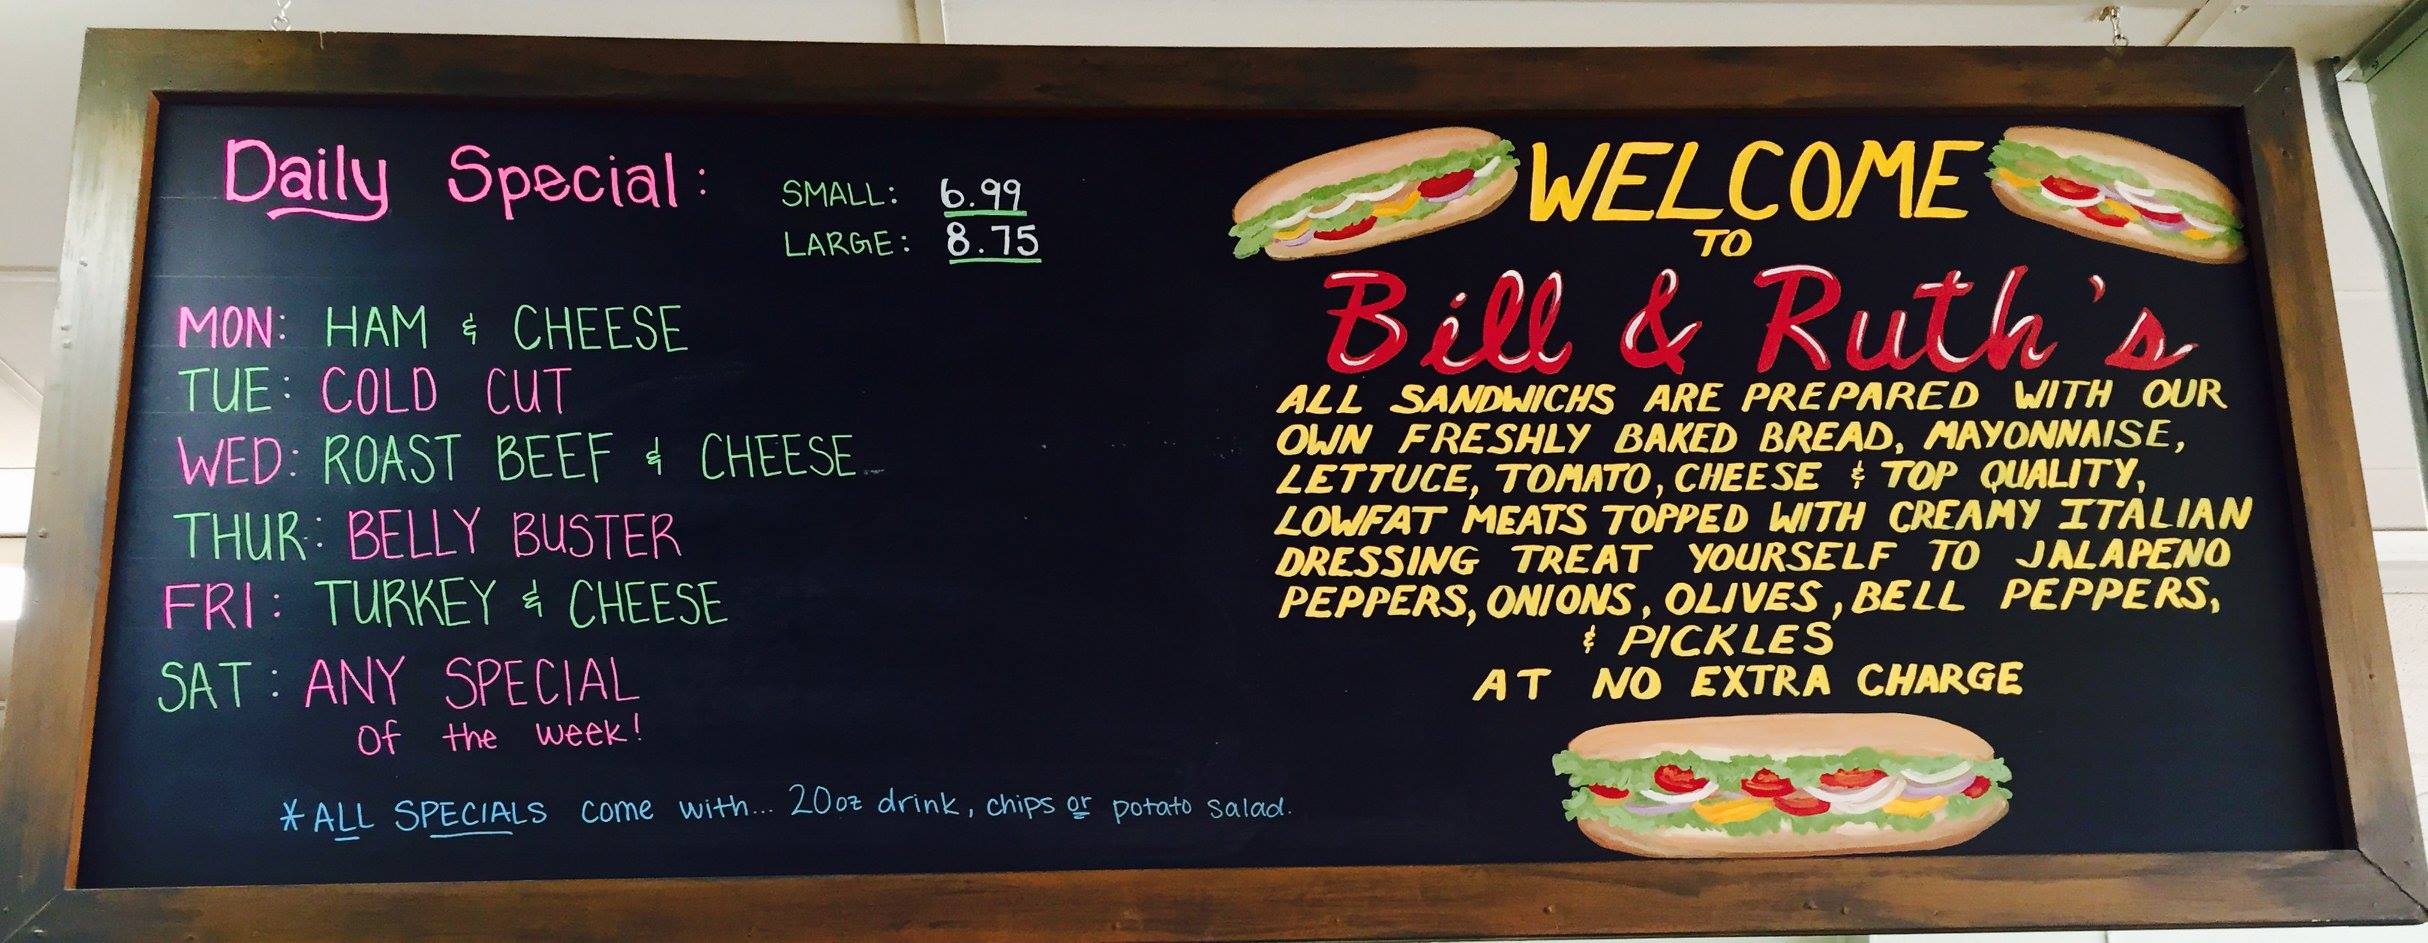 Daily Special:
SMALL: 6.99
LARGE: 8.75
MON: HAM & CHEESE
TUE: COLD CUT
WED: ROAST BEEF & CHEESE
THUR: BELLY BUSTER
FRI: TURKEY & CHEESE
SAT: ANY SPECIAL
of the week!
*ALL SPECIALS come with... 20oz drink, chips or potato salad.
WELCOME
TO
Bill & Ruth's
ALL SANDWICHS ARE PREPARED WITH OUR
OWN FRESHLY BAKED BREAD, MAYONNAISE,
LETTUCE, TOMATO, CHEESE & TOP QUALITY,
LOWFAT MEATS TOPPED WITH CREAMY ITALIAN
DRESSING TREAT YOURSELF TO JALAPENO
PEPPERS, ONIONS, OLIVES, BELL PEPPERS,
& PICKLES
AT NO EXTRA CHARGE